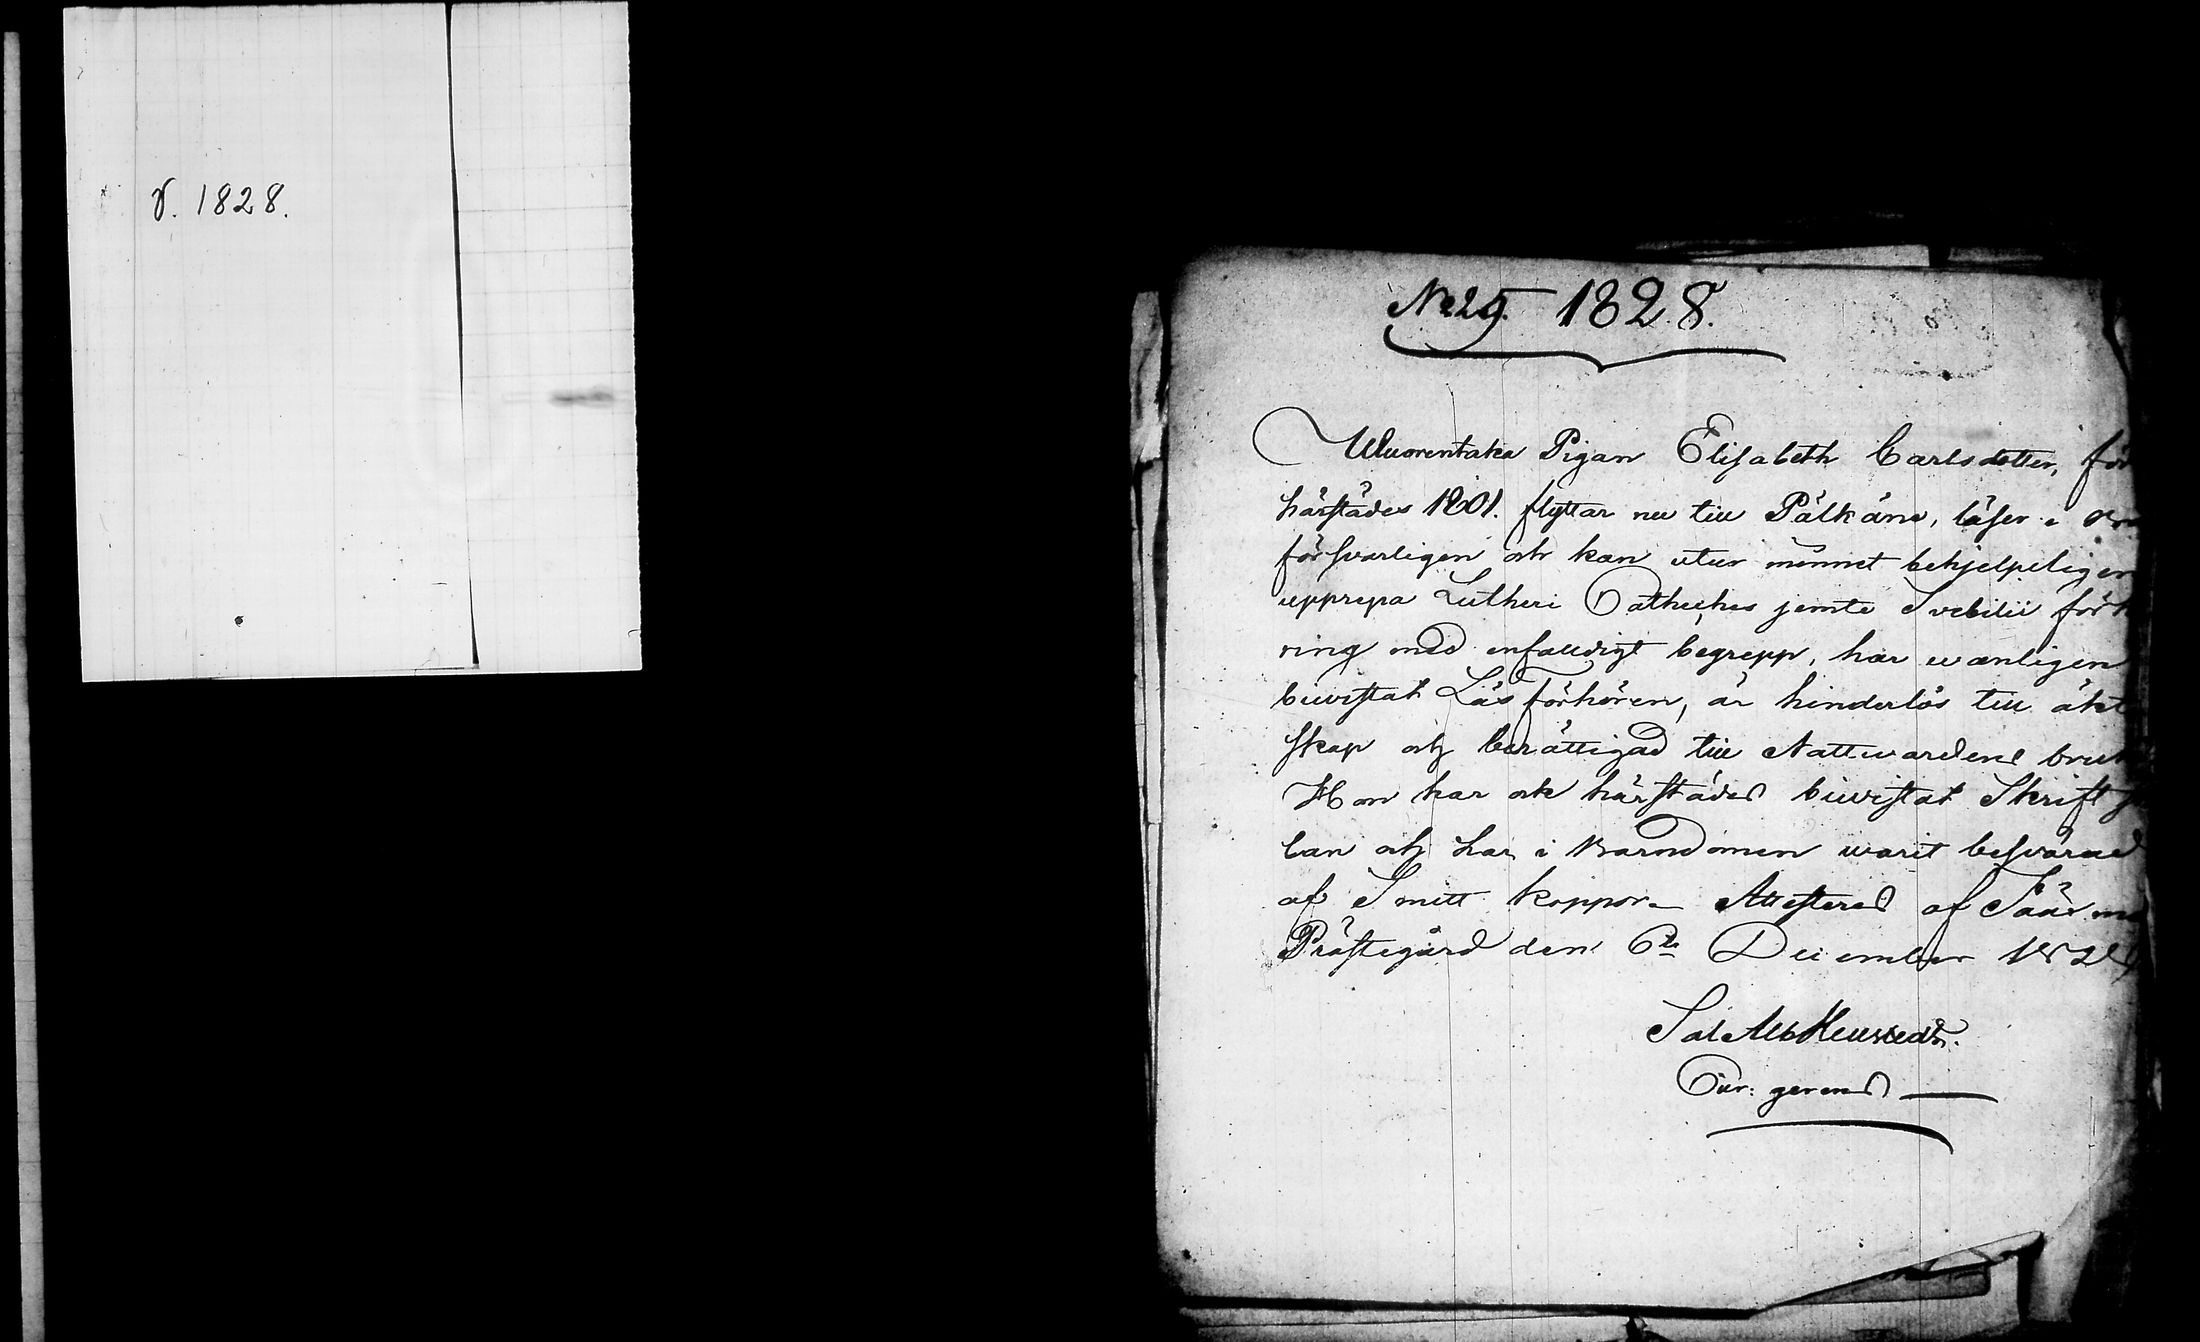 v. 1828.
No 25. 1828.
Wuorentaka Pigan Elisabeth Carlsdotter, för
härstädes 1801. flyttar nu till Pälkäne, läser i
försvarligen och kan utur minnet behjelpeligen
upprepa Lutheri Catheches jemte Svebilii för
ring med enfalldigt begrepp, har wanligen
biwistat Läsförhören, är hinderlös till äkt
skap och berättigad till Nattwardens bruk
Hon har ock härstädes biwistat Skrift
lan och har i barndomen warit besvärad
af Smitt koppor. Attesteras af Sääxmä
Prästegård den 6te December 1828
Sal Alb
Cur: gerens